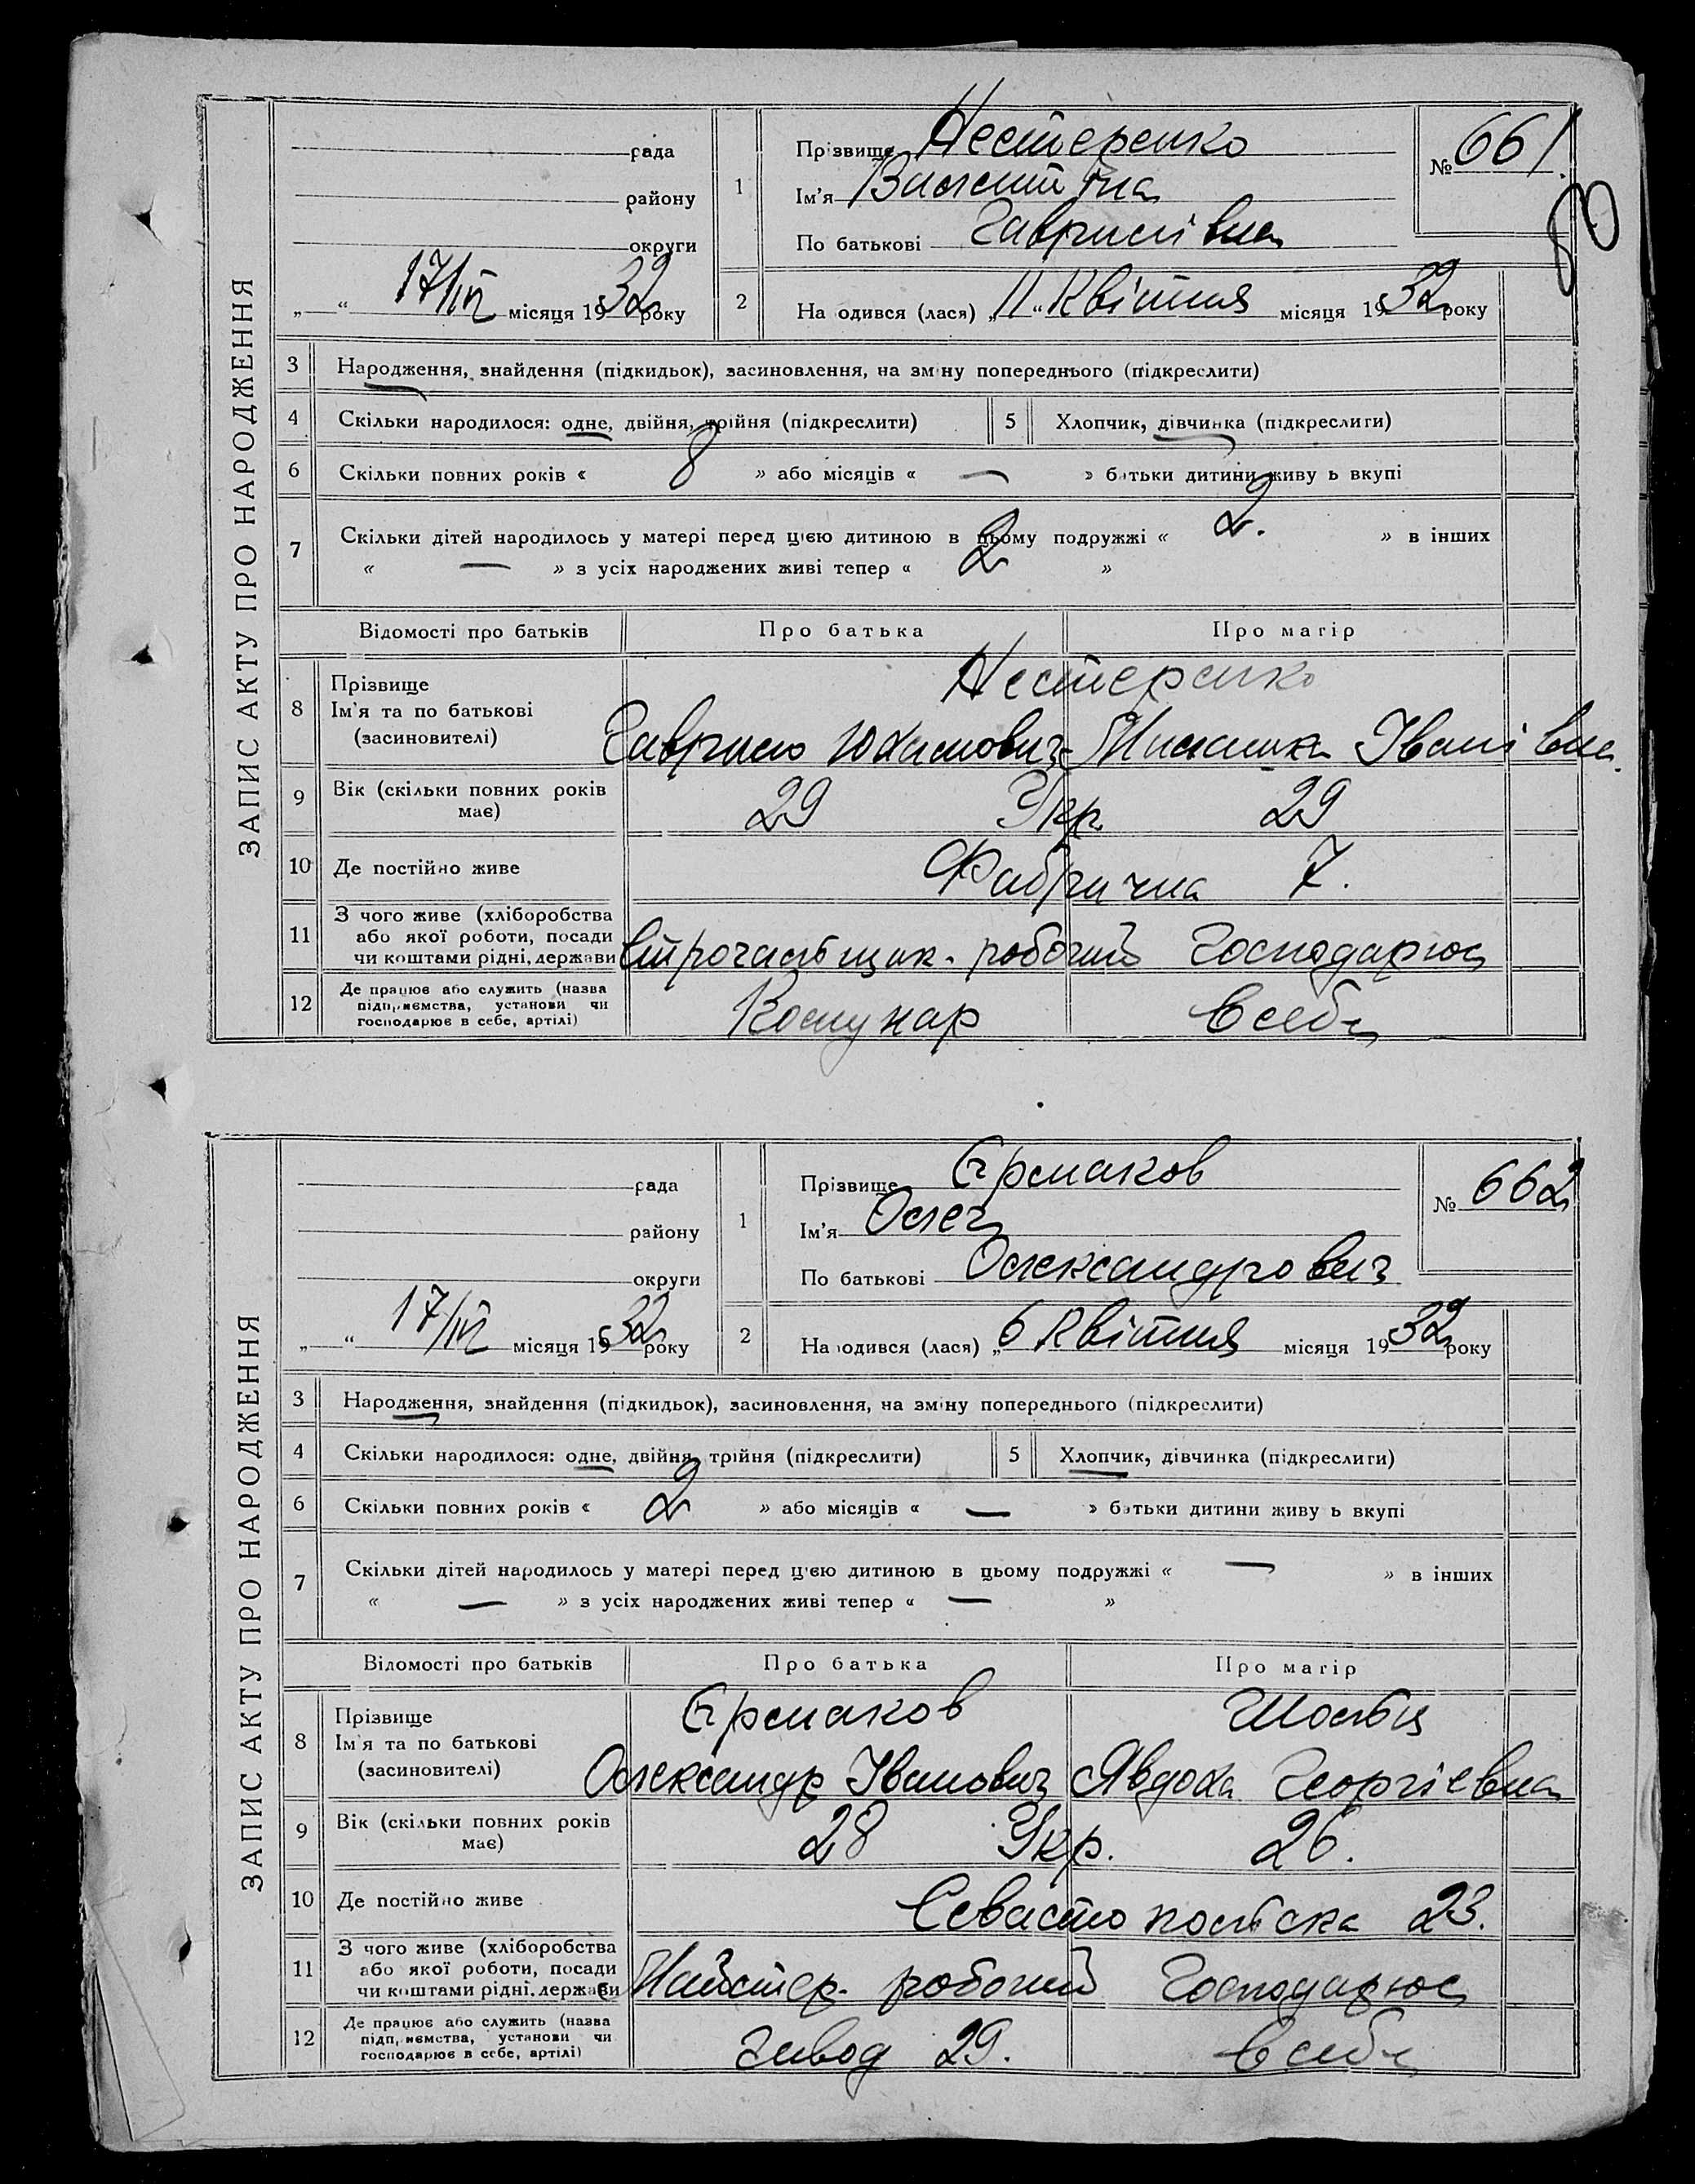 ЗАПИС АКТУ ПРО НАРОДЖЕННЯ
рада
району
округи
„ “ 17/IV місяця 1932 року
1
Прізвище Нестеренко
Ім'я Валентина
По батькові Гаврилівна
№ 661.
80
2 На одився (лася) „11“ Квітня місяця 1932 року
3 Народження, знайдення (підкидьок), засиновлення, на зміну попереднього (підкреслити)
4 Скільки народилося: одне, двійня, трійня (підкреслити) 5 Хлопчик, дівчинка (підкреслити)
6 Скільки повних років « 8 » або місяців « — » батьки дитини живу ь вкупі
7 Скільки дітей народилось у матері перед цією дитиною в цьому подружжі « 2. » в інших
« — » з усіх народжених живі тепер « 2 »
Відомості про батьків Про батька Про матір
8 Прізвище
Ім'я та по батькові
(засиновителі)
Нестеренко
Гаврило Юхимович Іванівна
9 Вік (скільки повних років
має)
29 Укр 29
10 Де постійно живе Фабрична 7.
11 З чого живе (хліборобства
або якої роботи, посади
чи коштами рідні, держави
робочий Господарює
12 Де працює або служить (назва
підприємства, установи чи
господарює в себе, артілі)
Комунар в себе
ЗАПИС АКТУ ПРО НАРОДЖЕННЯ
рада
району
округи
„ “ 17/IV місяця 1932 року
1
Прізвище Єрмаков
Ім'я Олег
По батькові Олександрович
№ 662
2 На одився (лася) „6 Квітня місяця 1932 року
3 Народження, знайдення (підкидьок), засиновлення, на зміну попереднього (підкреслити)
4 Скільки народилося: одне, двійня, трійня (підкреслити) 5 Хлопчик, дівчинка (підкреслити)
6 Скільки повних років « 2 » або місяців « — » батьки дитини живу ь вкупі
7 Скільки дітей народилось у матері перед цією дитиною в цьому подружжі « — » в інших
« — » з усіх народжених живі тепер « — »
Відомості про батьків Про батька Про матір
8 Прізвище
Ім'я та по батькові
(засиновителі)
Єрмаков
Олександр Іванович Явдоха Георгієвна
9 Вік (скільки повних років
має)
28 Укр. 26.
10 Де постійно живе Севастопольска 23.
11 З чого живе (хліборобства
або якої роботи, посади
чи коштами рідні, держави
Майстер. робочий Господарює
12 Де працює або служить (назва
підприємства, установи чи
господарює в себе, артілі)
Завод 29. в себе